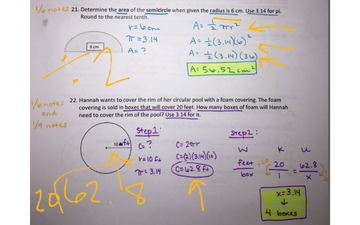 1/6 notes
21. Determine the area of the semicircle when given the radius is 6 cm. Use 3.14 for pi.
Round to the nearest tenth.
r=6cm
π=3.14
A=?
6 cm
A=½πr²
A=½(3.14)(6)²
A=½(3.14)(36)
A=56.52cm²
1/6 notes
and
1/9 notes
22. Hannah wants to cover the rim of her circular pool with a foam covering. The foam
covering is sold in boxes that will cover 20 feet. How many boxes of foam will Hannah
need to cover the rim of the pool? Use 3.14 for π.
Step 1:
C=?
r=10 ft
π=3.14
C=2πr
C=(2)(3.14)(10)
C=62.8 ft
Step 2:
W K U
feet
box
20
1
=
62.8
x
x=3.14
↓
4 boxes
20 62.8